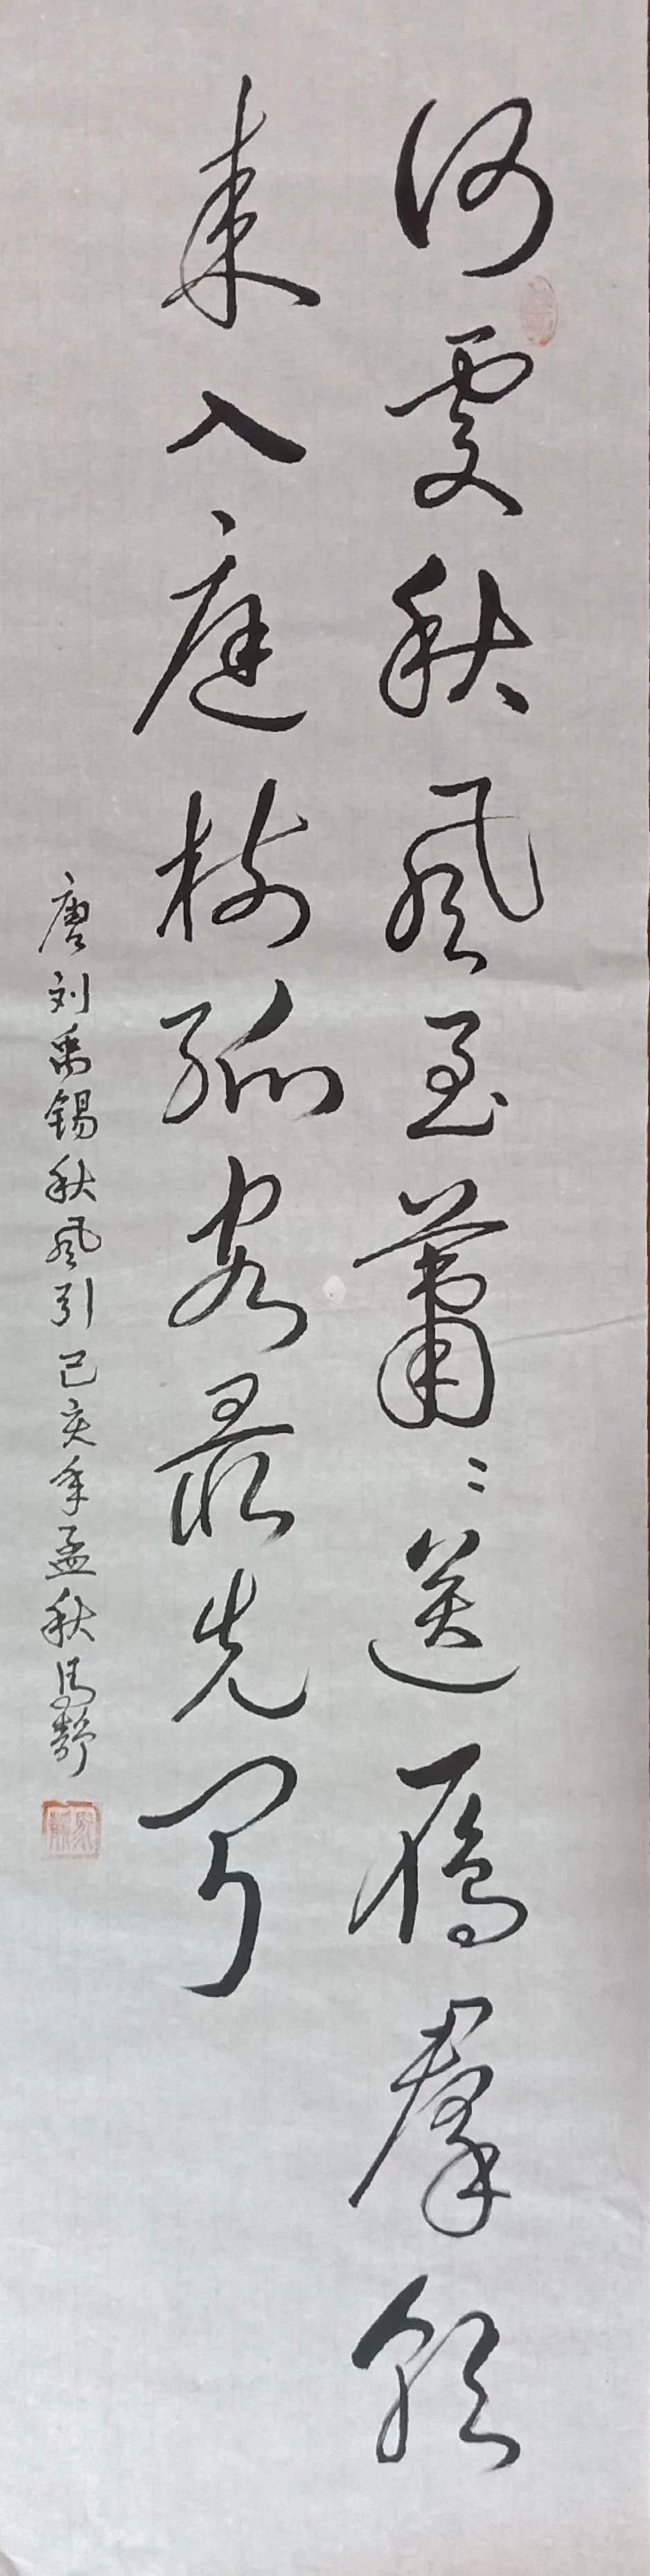 何处秋风至萧〻送雁群朝
来入庭树孤客最先闻
唐刘禹锡秋风引己亥年孟秋马静